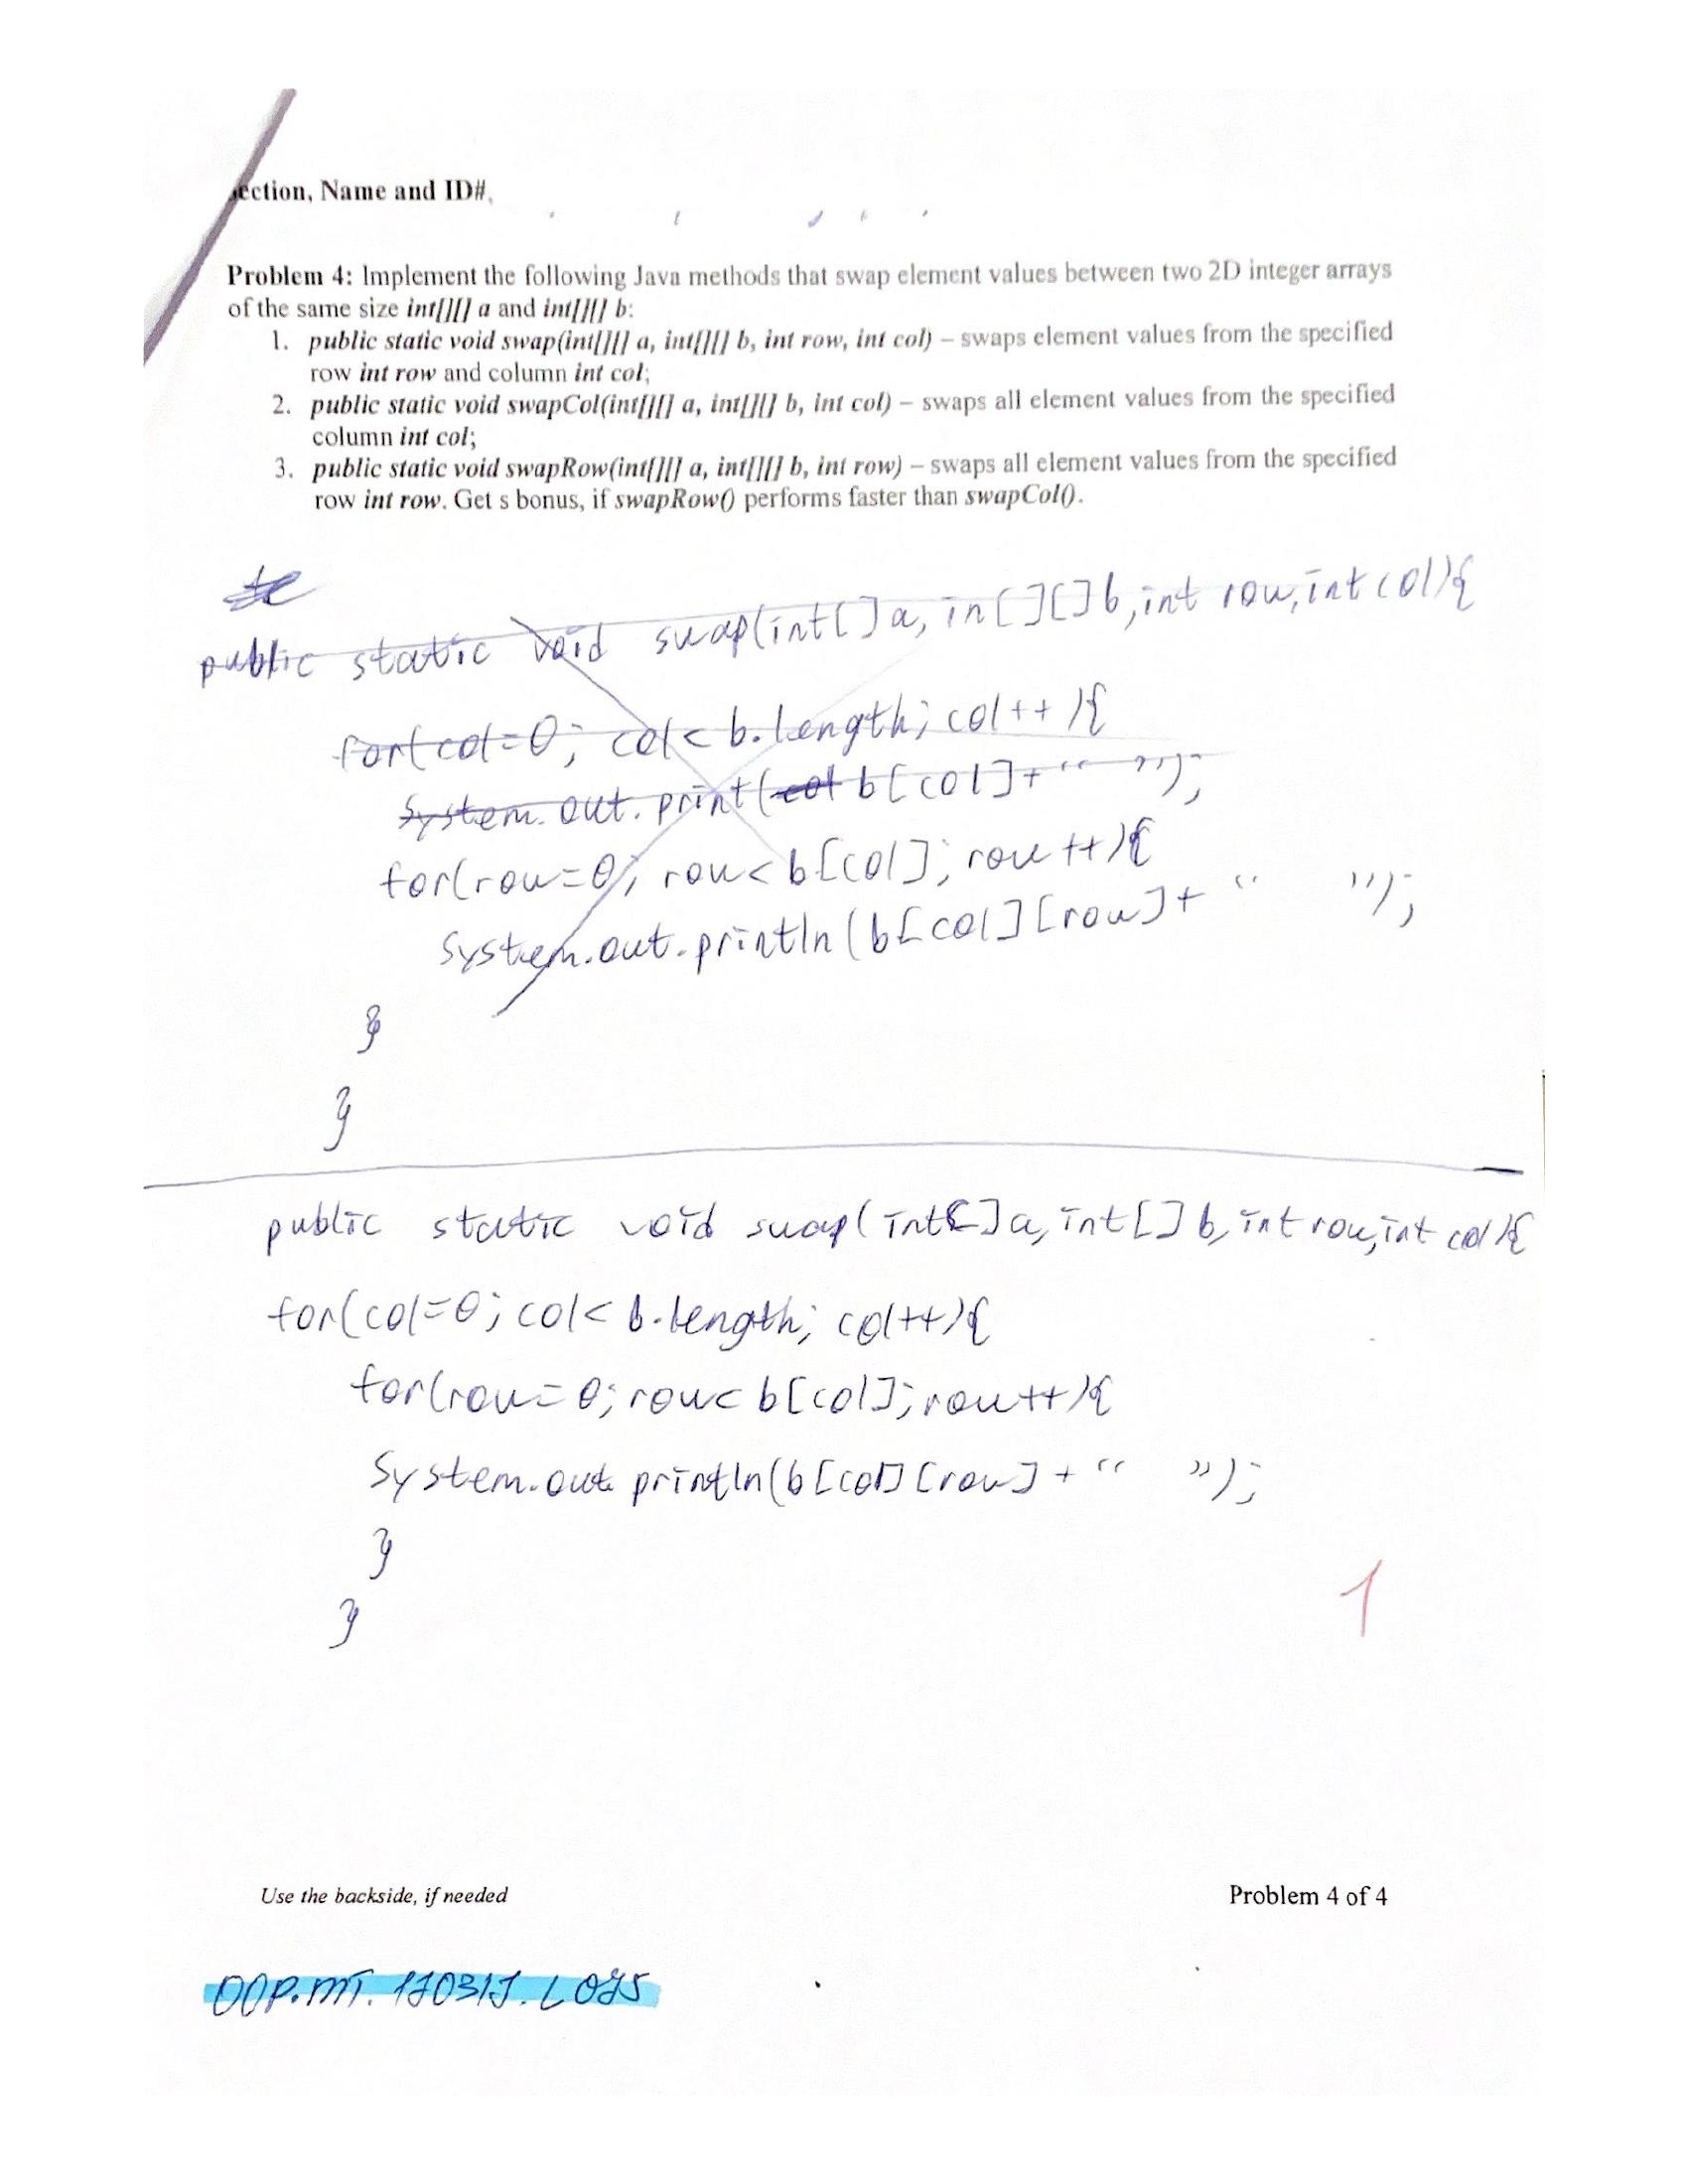 ection, Name and ID#,
Problem 4: Implement the following Java methods that swap element values between two 2D integer arrays
of the same size int[][] a and int[][] b:
1. public static void swap(int[][] a, int[][] b, int row, int col) – swaps element values from the specified
row int row and column int col;
2. public static void swapCol(int[][] a, int[][] b, int col) – swaps all element values from the specified
column int col;
3. public static void swapRow(int[][] a, int[][] b, int row) – swaps all element values from the specified
row int row. Get s bonus, if swapRow() performs faster than swapCol().
public static void swap(int[]a, in[][]b, int row, int col){
for(col=0; col< b.length; col++){
System.out.print(col b[col]+" ");
for(row=0; row<b[col]; row++){
System.out.println(b[col][row]+" ");
}
}
public static void swap(int[]a, int[]b, int row, int col){
for(col=0; col< b.length; col++){
for(row=0; row< b[col]; row++){
System.out.println(b[col][row]+" ");
}
}
1
Use the backside, if needed
Problem 4 of 4
OOP.MT.